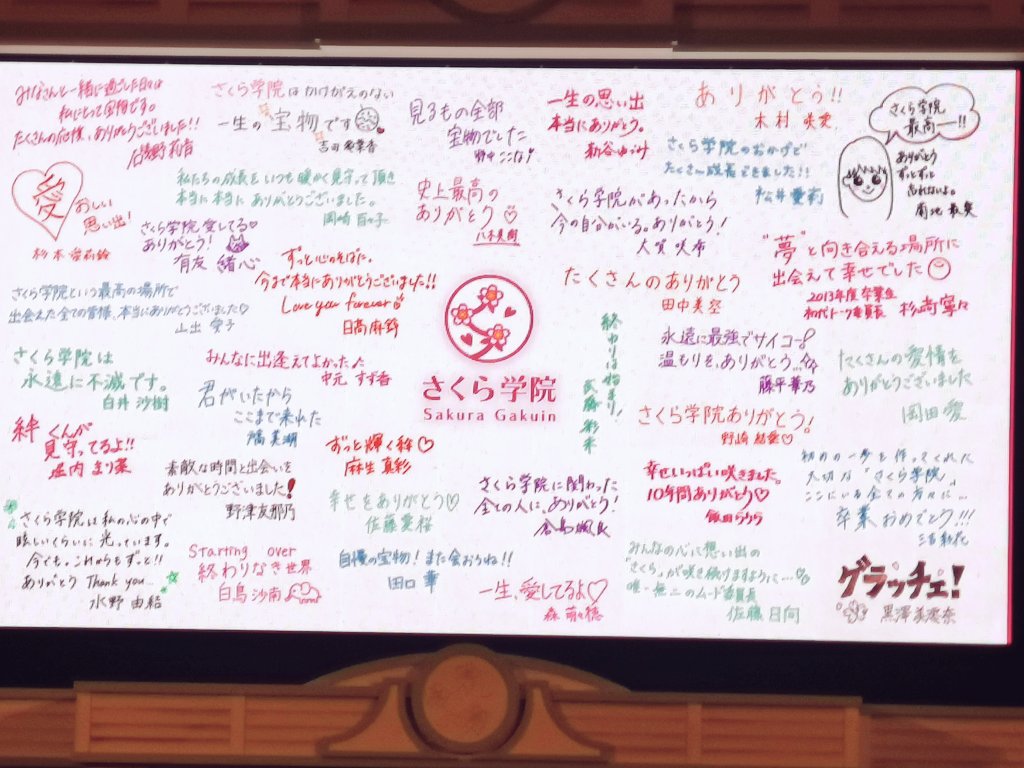 みなさんと一緒に過ごした日々は
私にとって宝物です。
たくさんの応援、ありがとうございました!!
さくら学院はかけがえのない
一生の宝物です
吉田 爽葉香
見るもの全部
宝物でした
野中 ここな
一生の思い出
本当にありがとう。
新谷ゆづみ
ありがとう!!
木村 咲愛
さくら学院
最高ー!!
ありがとう
ずっとずっと
忘れないよ。
菊地 最愛
愛
おしい
思い出!
杉本 愛莉鈴
私たちの成長をいつも暖かく見守って頂き
本当に本当にありがとうございました。
岡崎 百々子
史上最高の
ありがとう♡
八木美樹
さくら学院のおかげで
たくさん成長できました!!
さくら学院があったから
今の自分がいる。ありがとう!
大賀 咲希
さくら学院愛してる♡
ありがとう!
有友 緒心
ずっと心のそばに。
今まで本当にありがとうございました!!
Love you forever
日髙麻鈴
たくさんのありがとう
田中美空
"夢"と向き合える場所に
出会えて幸せでした
2013年度卒業生
初代トーク委員長 杉﨑寧々
さくら学院という最高の場所で
出会えた全ての皆様、本当にありがとうございました♡
山出 愛子
さくら学院は
永遠に不滅です。
白井 沙樹
みんなに出逢えてよかった
中元 すず香
君がいたから
ここまで来れた
さくら学院
Sakura Gakuin
終わりは始まり!
武藤 彩未
永遠に最強でサイコー!
温もりを、ありがとう…
藤平華乃
たくさんの愛情を
ありがとうございました
岡田 愛
さくら学院ありがとう!
野崎 結愛♡
絆 くんが
見守ってるよ!!
堀内 まり菜
ずっと輝く絆♡
麻生 真彩
素敵な時間と出会いを
ありがとうございました!
野津友那乃
幸せをありがとう♡
佐藤愛桜
さくら学院に関わった
全ての人に、ありがとう!
倉島颯良
幸せいっぱい咲きました。
10年間ありがとう♡
飯田らうら
初めの一歩を作ってくれた
大切な「さくら学院」。
ここにいる全ての方々に…
卒業 おめでとう!!!
さくら学院は私の心の中で
眩しいくらいに光っています。
今でも、これからもずっと!!
ありがとう Thank you…
水野 由結
Starting over
終わりなき世界
白鳥 沙南
自慢の宝物! また会おうね!!
田口 華
一生、愛してるよ♡
森 萌々穂
みんなの心に想い出の
"さくら"が咲き続けますように…♡
唯一無二のムード委員長
佐藤 日向
グラッチェ!
黒澤 美澪奈